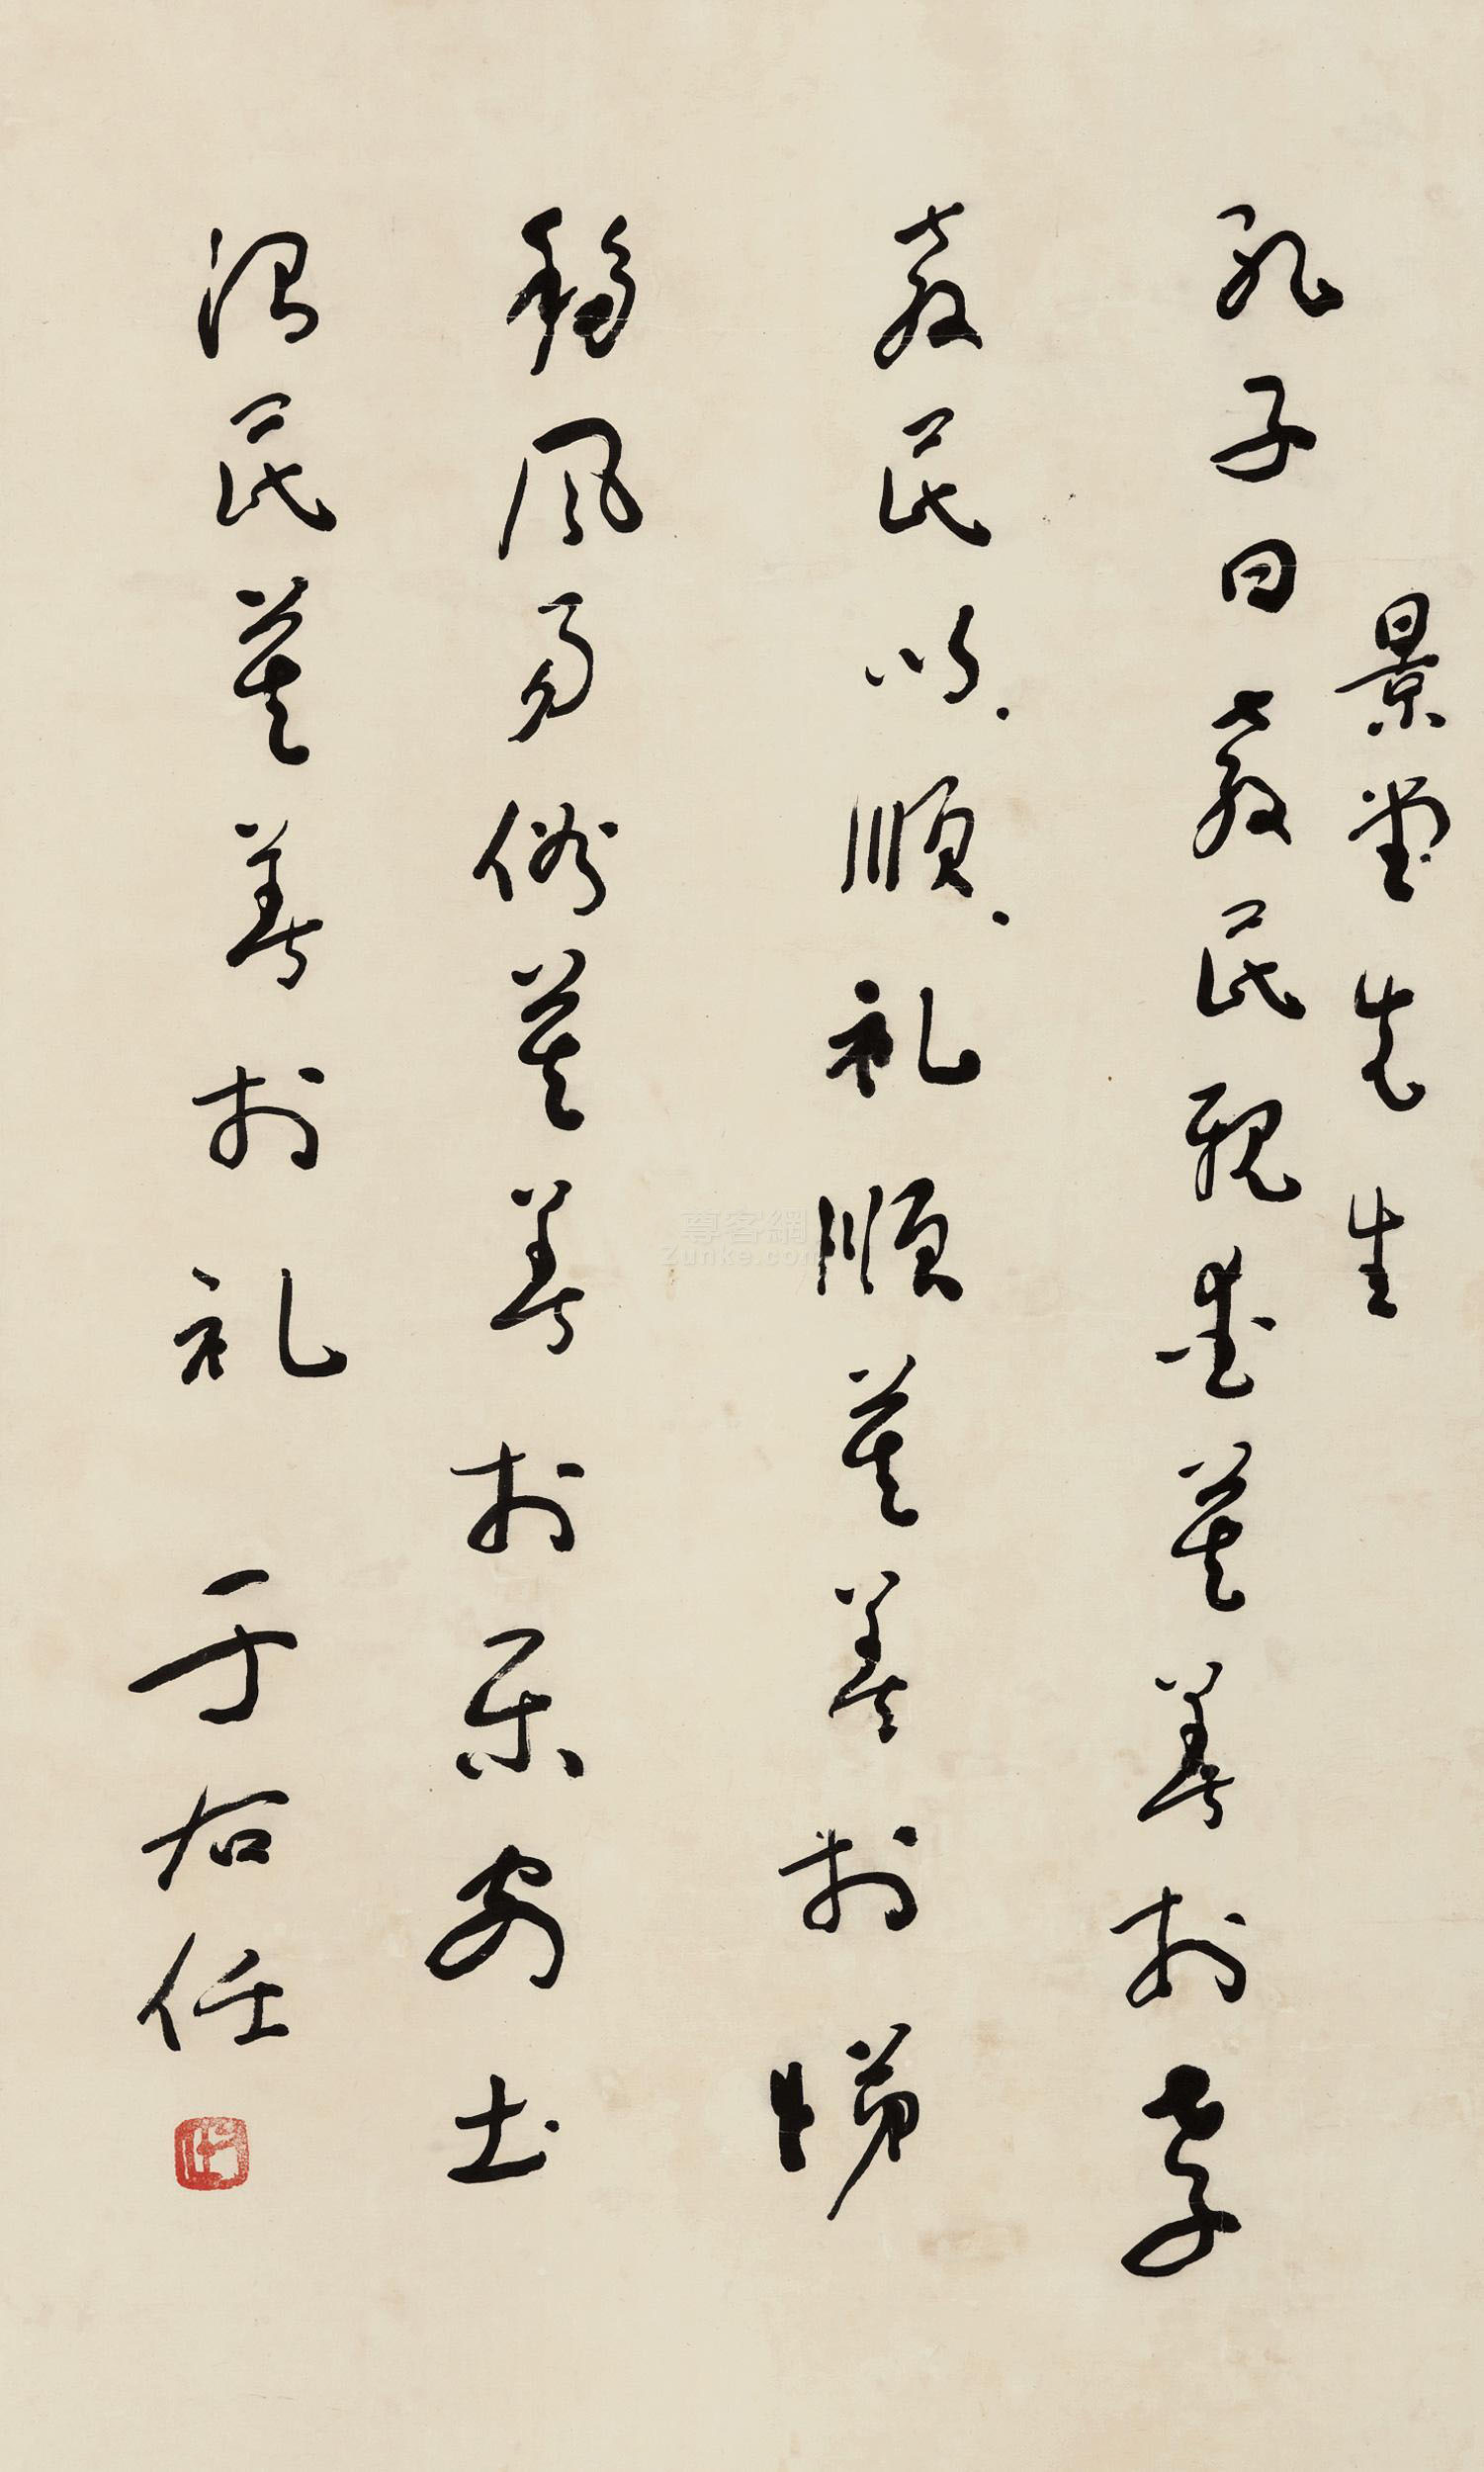 景堂先生
孔子曰教民親愛莫善於孝
教民以順礼順莫善於悌
移風易俗莫善於樂安土
治民莫善於礼 于右任
右任
尊客網
Zunke.com